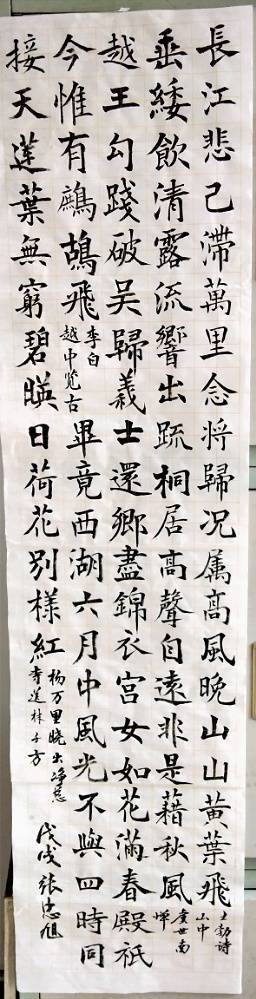 長江悲已滯萬里念將歸况属高風晚山山黃葉飛
王勃詩
山中
垂緌飲清露流響出疏桐居高聲自遠非是藉秋風
虞世南
蟬
越王勾踐破吴歸義士還鄉盡錦衣宫女如花滿春殿衹
今惟有鷓鴣飛
李白
越中览古
畢竟西湖六月中風光不與四時同
接天莲葉無窮碧暎日荷花别樣紅
杨万里晓出净慈
寺送林子方
戊戌张忠